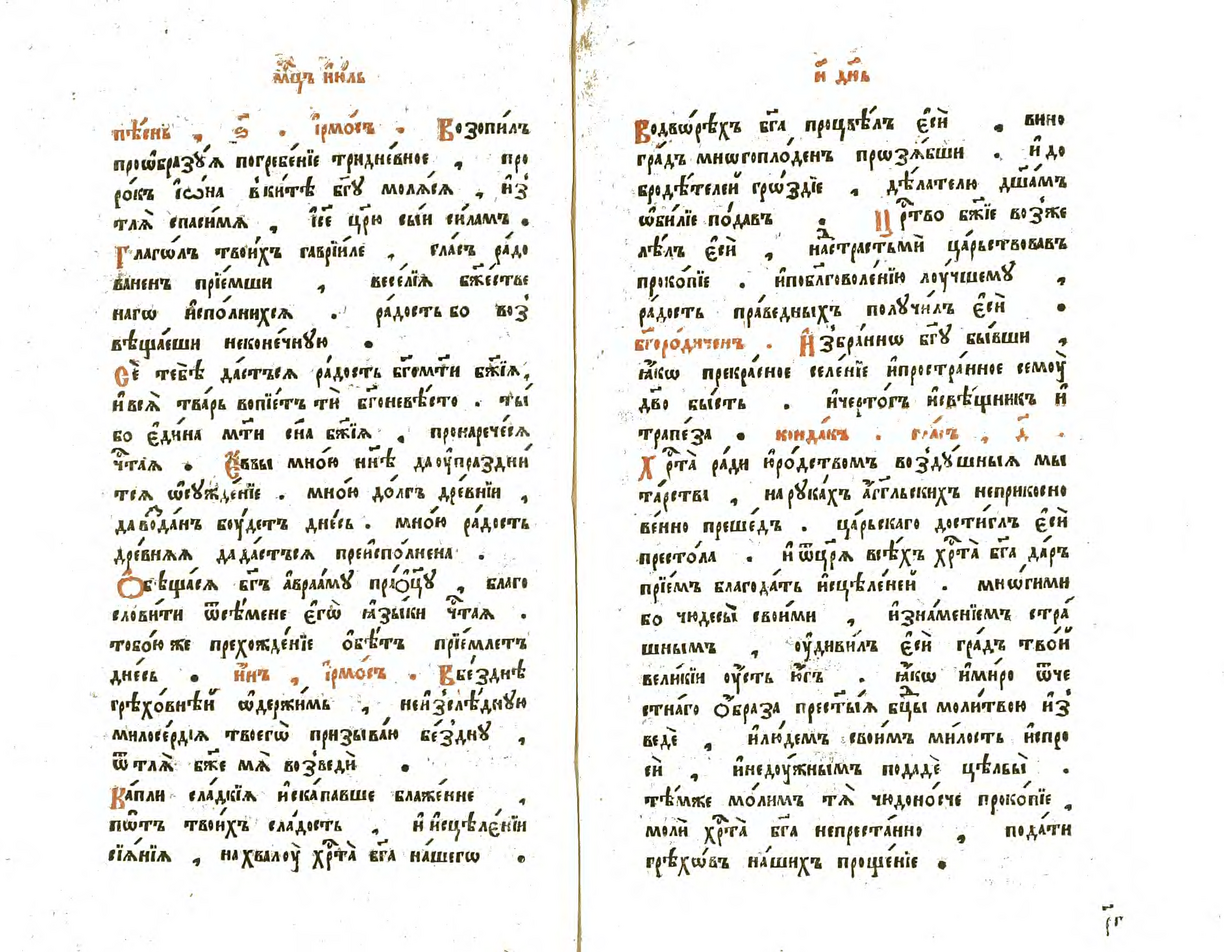 мⷭ҇цъ і҆ю́ль
пѣ́снь , ѕ҃ . і҆рмо́съ . Возопи́лъ
проѡбразꙋ́ѧ погребе́нїе тридне́вное , про
ро́къ і҆ѡ́на вки́тѣ бг҃ꙋ молѧ́сѧ , и҆з̾
тлѧ̀ спаси́мѧ , і҆и҃се цр҃ю сы́и си́ламъ .
Глаго́лъ твои́хъ гаврїи́ле , гла́съ ра́до
ваненъ прїе́мши , весе́лїѧ бж҃е́стве
нагѡ и҆спо́лнихсѧ . ра́дость бо воз̾
вѣща́еши неконе́чную .
Се́ тебѣ̀ да́стьсѧ ра́дость бг҃ома́ти бж҃їѧ ,
и҆ всѧ̀ тва́рь вопїе́тъ ти̑ бг҃оневѣ́сто . ты́
бо є҆ди́на мт҃и сн҃а бж҃їѧ , пронарече́сѧ
чⷭ҇таѧ . Е҆́ввы мно́ю нн҃ѣ да оу҆праздни́
тсѧ ѡ҆сꙋжде́нїе . мно́ю до́лгъ дре́внїи ,
да в̾да́нъ боу́детъ дне́сь . мно́ю ра́дость
дре́внѧѧ да да́стьсѧ преи҆спо́лнена .
Ѻ҆бѣща́сѧ бг҃ъ а҆враа́мꙋ пра́ѻцꙋ , благо
слови́ти ѿсѣ́мене є҆гѡ̀ ꙗ҆зы́ки чⷭ҇таѧ .
тобо́ю же прехожде́нїе ѻ҆бѣ́тъ прїе́млетъ
дне́сь . и҆́нъ , і҆рмо́съ . Вбе́зднѣ
грѣхо́внѣй ѡ҆держи́мь , неи҆з̾слѣ́дную
милосе́рдїѧ твоегѡ̀ призыва́ю бе́зднꙋ ,
ѿ тлѧ̀ бж҃е мѧ̀ возведѝ .
Ка́пли сла́дкїѧ и҆ска́павше блаже́нне ,
по́тъ твои́хъ сла́дость , и҆ и҆сцѣле́нїи
сїѧ́нїѧ , на хвалоу̀ хрⷭ҇та̀ бг҃а на́шегѡ .
и҃ дн҃ь
Водво́рѣхъ бг҃а процвѣ́лъ є҆сѝ . вино
гра́дъ многопло́денъ прозѧ́бши . и҆ до
бродѣ́телей гро́здїе , дѣ́лателю дш҃а́мъ
ѡ҆би́лїе пода́въ . Црⷭ҇тво бж҃їе воз̾же
лѣ́лъ є҆сѝ , надстрастьмѝ ца́рьствовавъ
проко́пїе . и҆поблговоле́нїю лоу́чшемꙋ ,
ра́дость пра́ведныхъ полꙋчи́лъ є҆сѝ .
бг҃оро́диченъ . И҆збра́нно бг҃ꙋ бы́вши ,
ꙗ҆́кѡ прекра́сное селе́нїе и҆простра́нное семоу̀
дв҃о бы́сть . и҆черто́гъ и҆свѣ́щникъ и҆
трапе́за . конда́къ . гла́съ , д҃ .
Хрⷭ҇та̀ ра́ди ю҆ро́дствомъ возд̾ꙋ́шныѧ мы
та́рства , на рꙋка́хъ а҆́гг҃льскихъ неприкосно
ве́нно преше́дъ . ца́рьскаго дости́глъ є҆сѝ
престо́ла . и҆ ѿцр҃ѧ̀ всѣ́хъ хрⷭ҇та̀ бг҃а да́ръ
прїе́мъ благода́ть и҆сцѣле́ней . мно́гими
бо чюдесы̀ свои́ми , и҆зна́менїемъ стра́
шнымъ , оу҆диви́лъ є҆сѝ гра́дъ тво́й
вели́кїи оу҆́сть ю҆́гъ . ꙗ҆́кѡ и҆ми́ро ѿче
стна́го ѻ҆́браза прест҃ы́ѧ бцⷣы моли́твою и҆з̾
ведѐ , и҆лю́демъ свои́мъ ми́лость и҆спро
сѝ , и҆недоу́жнымъ подадѐ цѣ́льбы .
тѣ́мже мо́лимъ тѧ̀ чюдоно́сче проко́пїе ,
молѝ хрⷭ҇та̀ бг҃а непреста́нно , пода́ти
грѣхо́въ на́шихъ проще́нїе .
рг҃